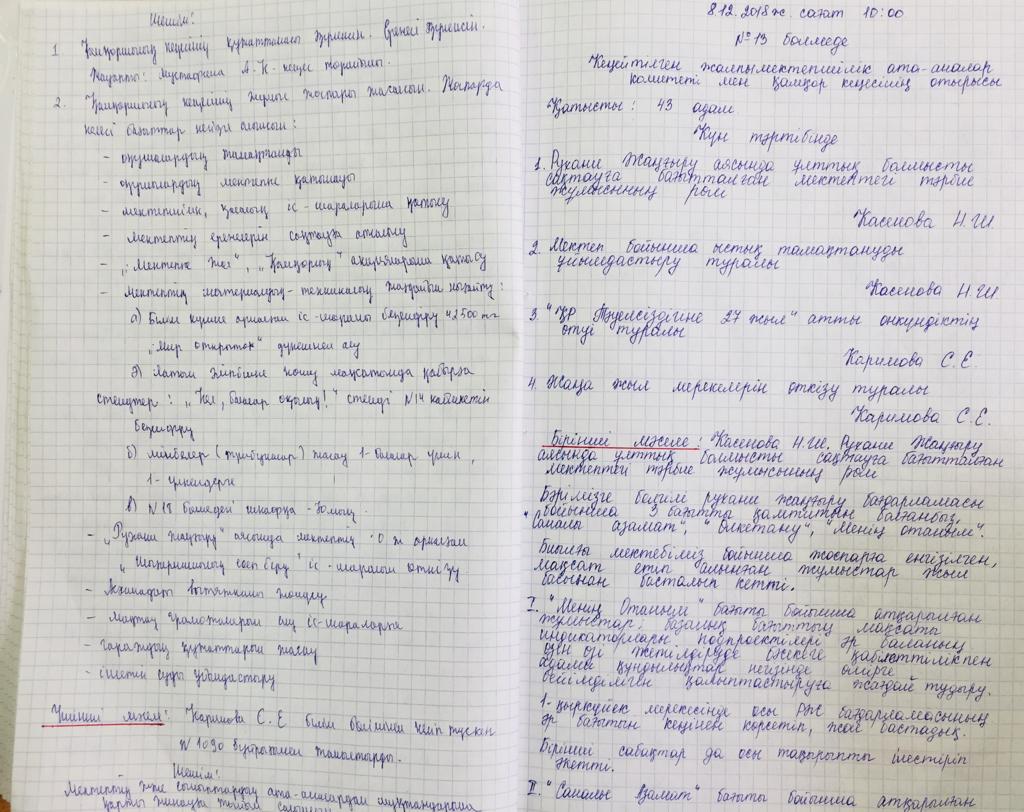 Шешім:
1 Қамқоршының кеңесінің құжаттамасы
Жауапты: Мустафина А.К. кеңес төрайымы.
2. Қамқоршының кеңесінің жұмыс жоспары жасалсын. Жоспарда
келесі бағыттар негізге алынсын:
- оқушылардың тамақтануы
- оқушылардың мектепке қатысуы
- мектепішілік, қалалық іс-шараларына қатысу
- мектептің ережелерін сақтауға атсалысу
- „Мектепке жол", „Қамқорлық" акцияларына қатысу
- мектептің материалдық-техникалық жағдайын нығайту:
а) Білім күніне арналған іс-шараны безендіру 42500 тг
„Мир открыток" дүкенінен алу
ә) Латын әліпбіне көшу мақсатында қабырға
стендтер: „Кел, балалар оқылық!" стенді №14 кабинетін
безендіру
б) мөлбелер (трибуналар) жасау 1-балалар үшін,
1-үлкендерге
в) №18 бөлмедегі шкафқа
- „Рухани жаңғыру" аясында мектептің ж арналған
„ есеп беру" іс-шарасын өткізу
- Асханадағы вытяжканы жөндеу
- Мақтау грамоталарын алу іс-шараларға
- гараждың құжаттарын жасау
- ішетін суды ұйымдастыру
Үшінші мәселе: Каримова С.Е білім бөлімінен келіп түскен
№1090 бұйрықпен таныстырды.
Шешім:
Мектептің және сыныптардың ата-аналардан
қаржы жинауға тыйым салынсын
8.12.2018 ж. сағат 10:00
№13 бөлмеде
Кеңейтілген жалпымектепішілік ата-аналар
комитеті мен қамқор кеңесінің отырысы
Қатысты: 43 адам
Күн тәртібінде
1. Рухани Жаңғыру аясында ұлттық болмысты
сақтауға бағытталған мектептегі тәрбие
жұмысының рөлі
Касенова Н.Ш.
2. Мектеп бойынша ыстық тамақтануды
ұйымдастыру туралы
Касенова Н.Ш.
3. "ҚР Тәуелсіздігіне 27 жыл" атты онкүндіктің
өтуі туралы
Каримова С.Е.
4. Жаңа жыл мерекелерін өткізу туралы
Каримова С.Е.
Бірінші мәселе: Касенова Н.Ш. Рухани Жаңғыру
аясында ұлттық болмысты сақтауға бағытталған
мектептегі тәрбие жұмысының рөлі
Бәрімізге белгілі рухани жаңғыру бағдарламасы
бойынша 3 бағытты қамтитын болғанбыз.
"Саналы азамат", "Өлкетану", "Менің отаным".
Биылғы мектебіміз бойынша жоспарға енгізілген,
мақсат етіп алынған жұмыстар жыл
басынан басталып кетті.
I. "Менің Отаным" бағыты бойынша атқарылған
жұмыстар: базалық бағыттың мақсаты
индикаторлары подпроектілері әр баланың
өзін өзі жетілдіруде бәсекеге қабілеттілікпен
адами құндылықтар негізінде өмірге
бейімделген қалыптастыруға жағдай тудыру.
1-қыркүйек мерекесінде осы РЖ бағдарламасының
әр бағытын кеңінен көрсетіп, жол бастадық.
Бірінші сабақтар да осы тақырыпты ілестіріп
әкетті.
II. "Саналы Азамат" бағыты бойынша атқарылған